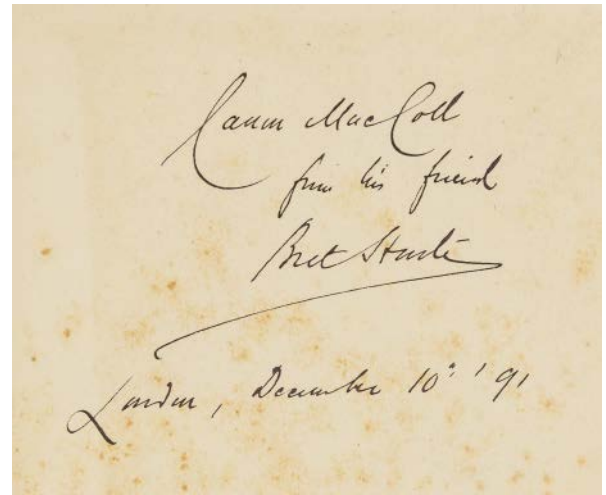 Canon MacColl
from his friend
Bret Harte
London, December 10th '91